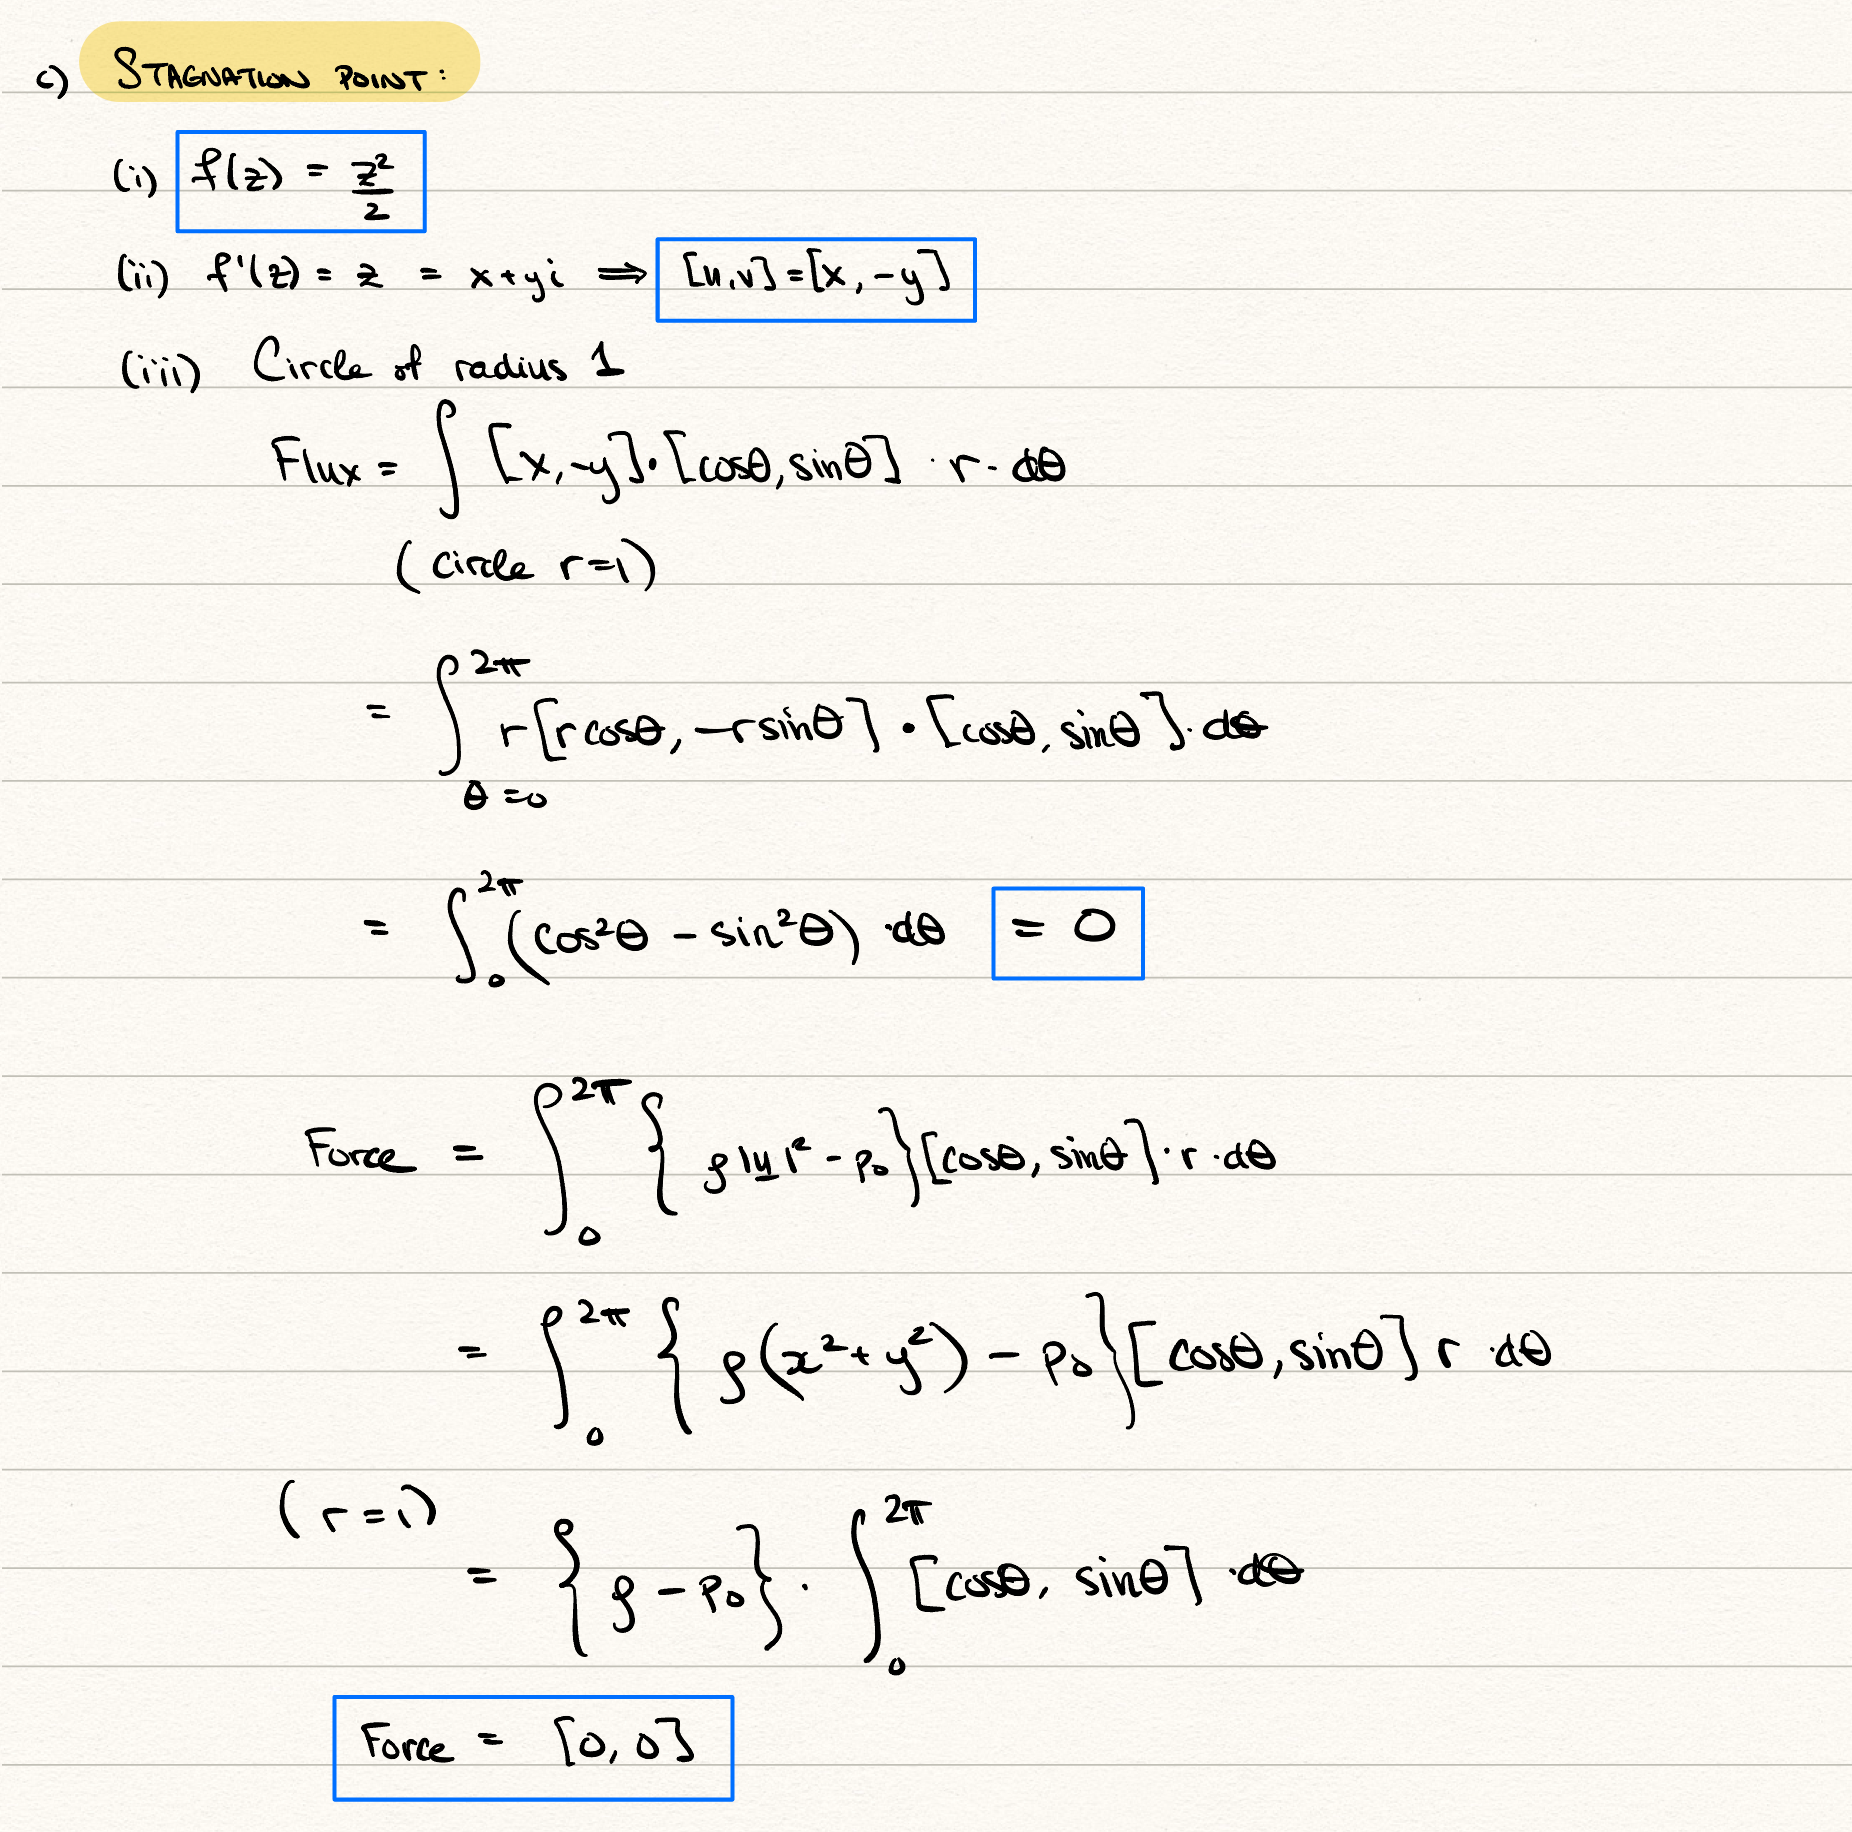 c) STAGNATION POINT:
(i) f(z) = z²/2
(ii) f'(z) = z = x+yi ⟹ [u,v]=[x,-y]
(iii) Circle of radius 1
Flux = ∫ [x,-y]·[cosθ,sinθ] · r · dθ
(circle r=1)
= ∫_{θ=0}^{2π} r[rcosθ, -rsinθ] · [cosθ, sinθ] · dθ
= ∫_0^{2π} (cos²θ - sin²θ) · dθ = 0
Force = ∫_0^{2π} {ρ|u̲|² - p₀}[cosθ, sinθ] · r · dθ
= ∫_0^{2π} {ρ(x²+y²) - p₀}[cosθ, sinθ] r · dθ
(r=1)
= {ρ - p₀} · ∫_0^{2π} [cosθ, sinθ] · dθ
Force = [0, 0]